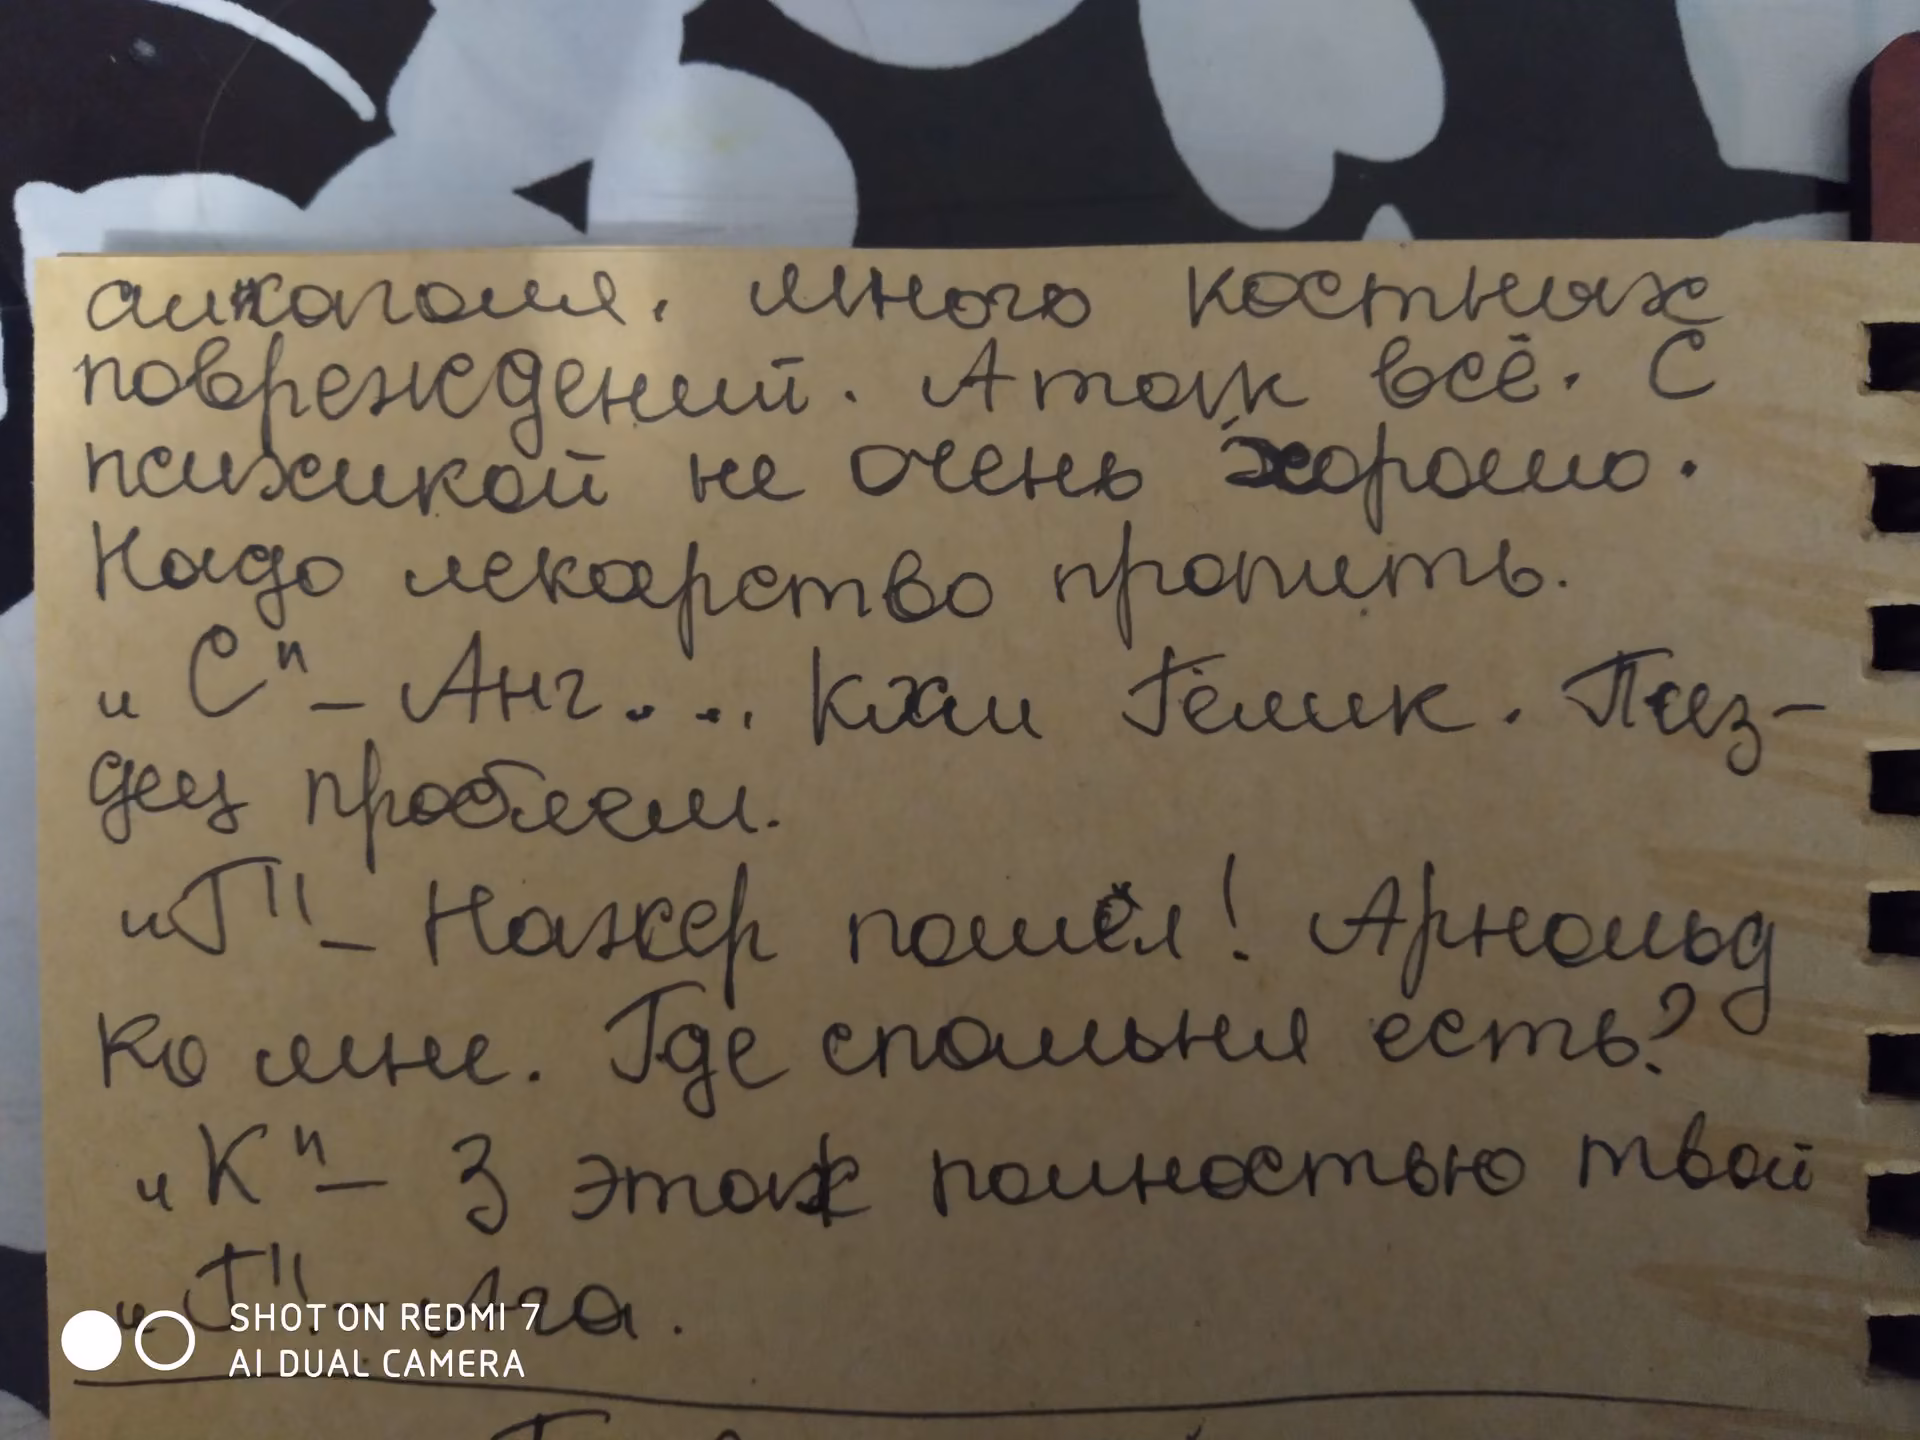 алкоголя. много костных
повреждений. А так всё. С
психикой не очень хорошо.
Надо лекарство пропить.
„С" – Анг.... Кхм Гелик. Пиз-
дец проблем.
„Г" – Нахер пошёл! Арнольд
ко мне. Где спальня есть?
„К" – 3 этаж полностью твой
„Г" – Ага.
SHOT ON REDMI 7
AI DUAL CAMERA